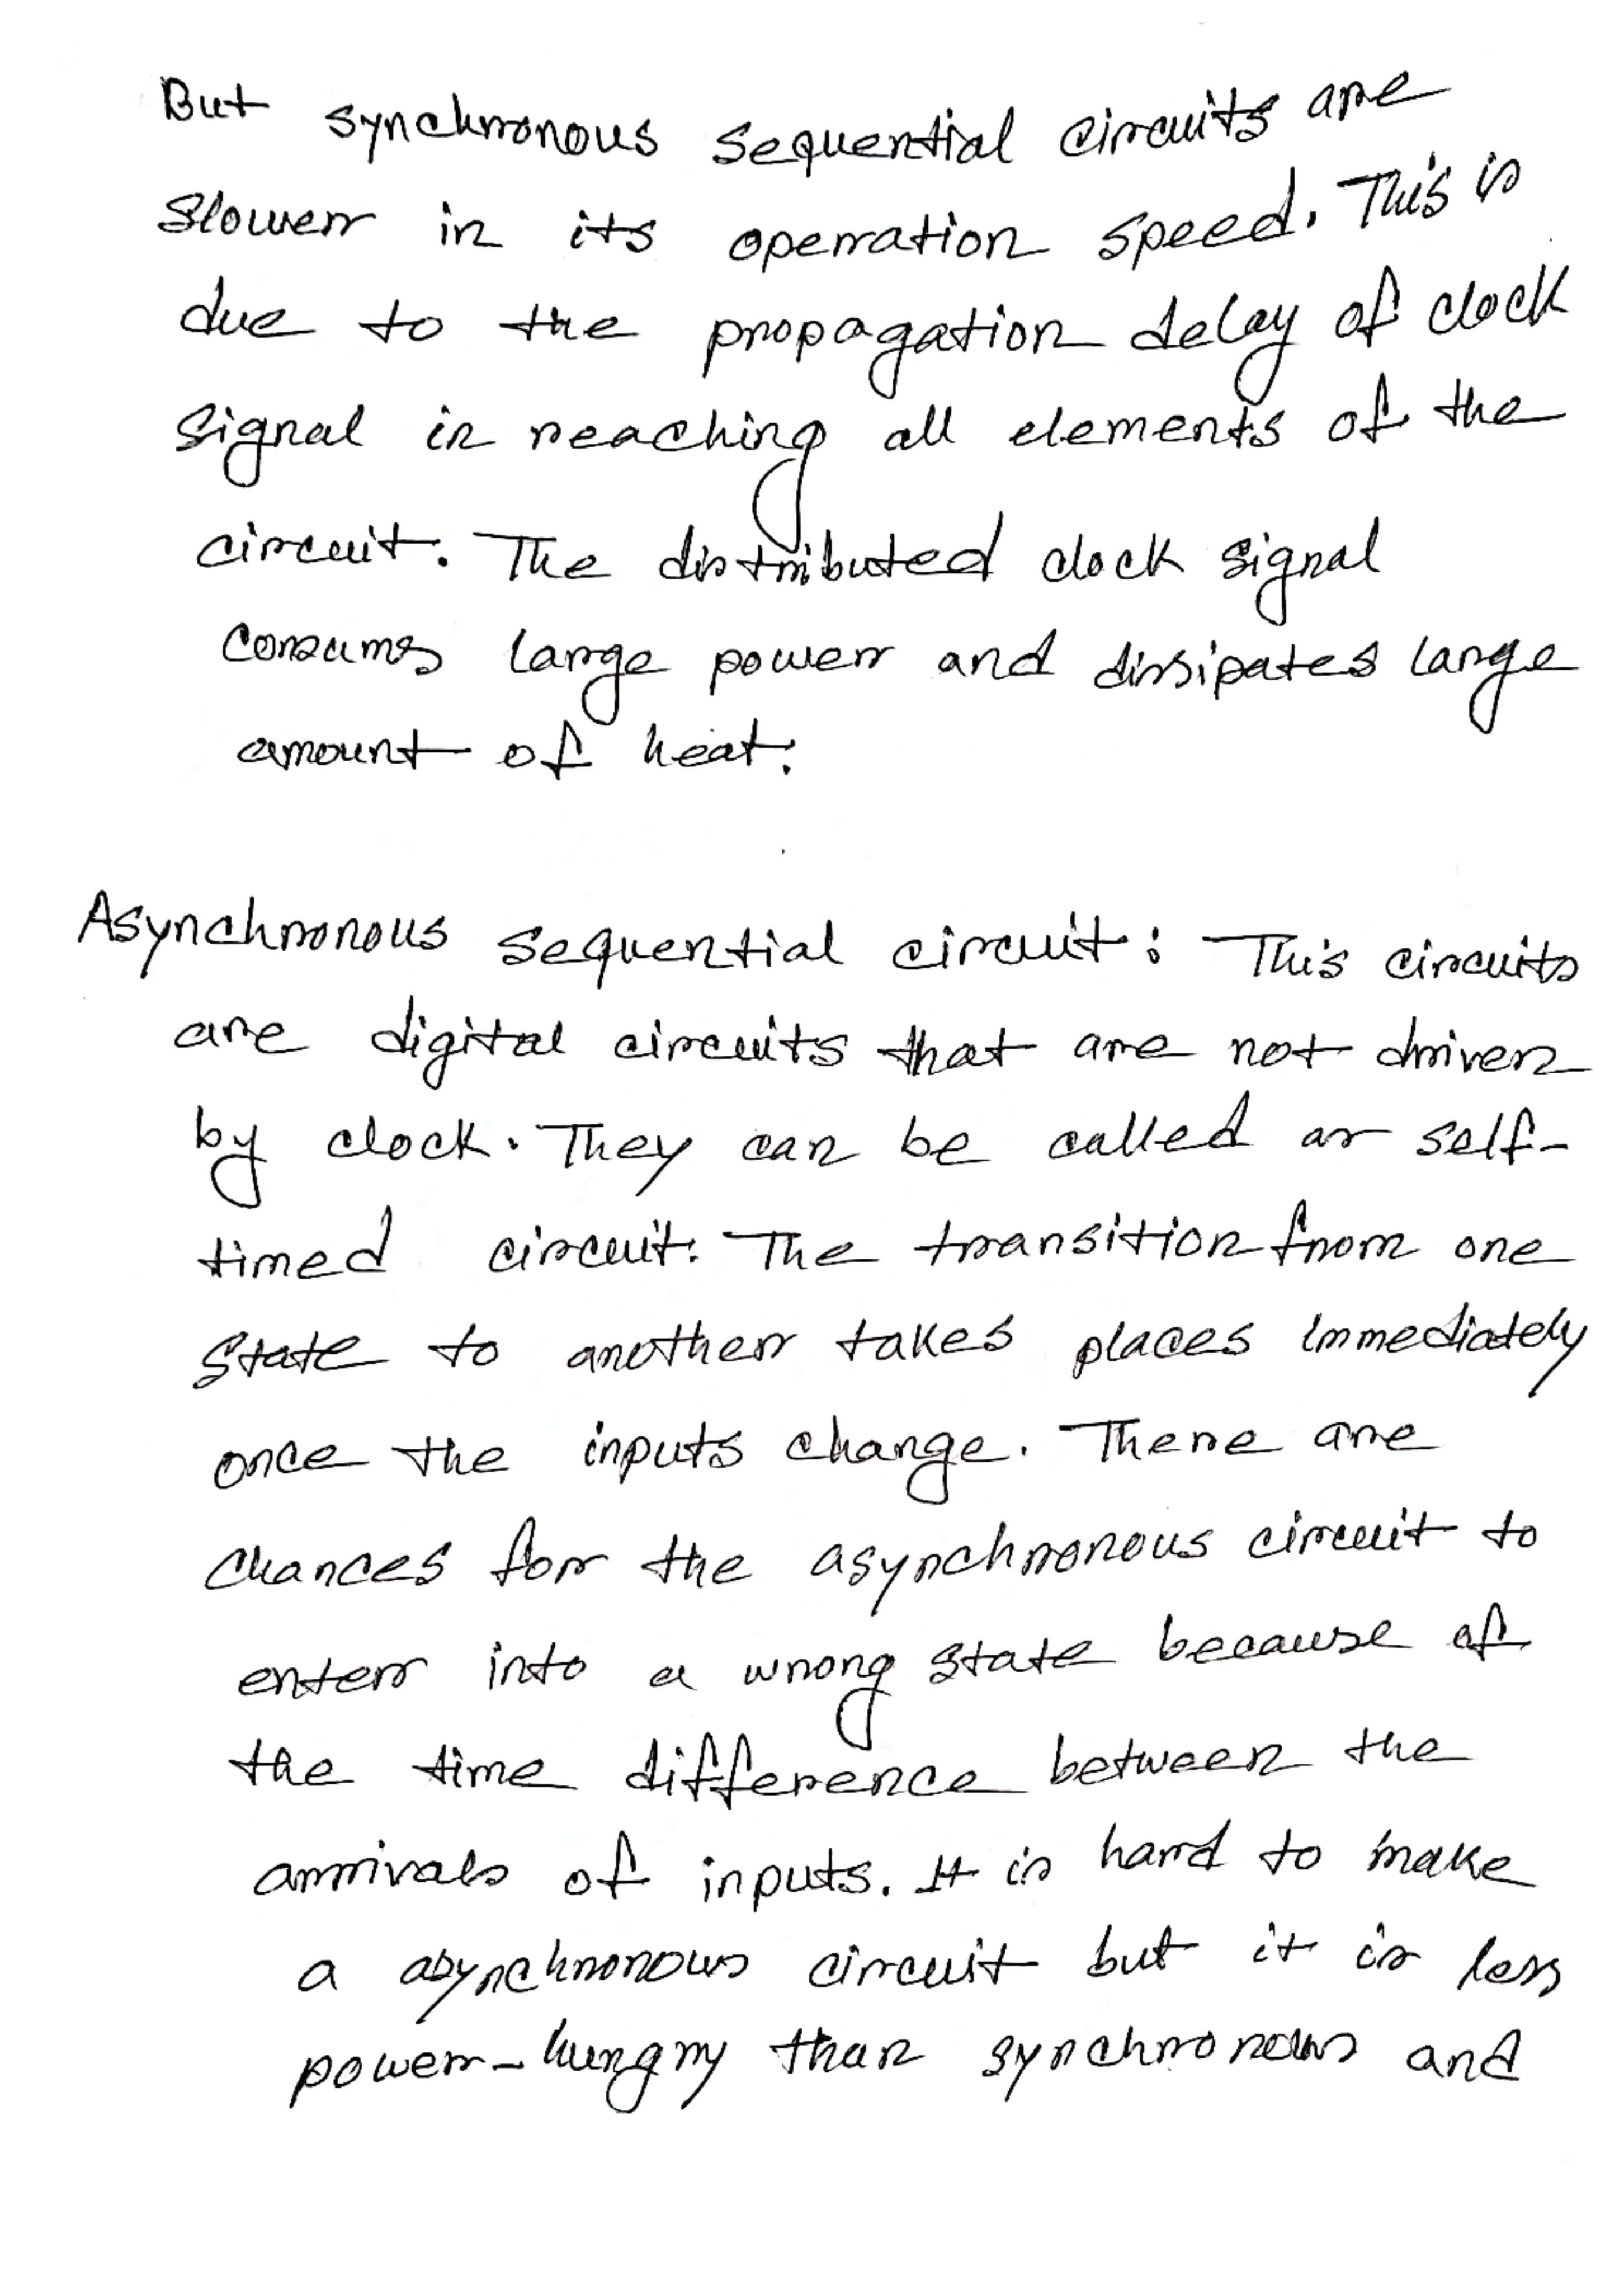 But synchronous sequential circuits are
slower in its operation speed. This is
due to the propagation delay of clock
signal in reaching all elements of the
circuit. The distributed clock signal
consumes large power and dissipates large
amount of heat.
Asynchronous sequential circuit: This circuits
are digital circuits that are not driven
by clock. They can be called as self-
timed circuit. The transition from one
state to another takes places immediately
once the inputs change. There are
chances for the asynchronous circuit to
enter into a wrong state because of
the time difference between the
arrivals of inputs. It is hard to make
a asynchronous circuit but it is less
power-hungry than synchronous and